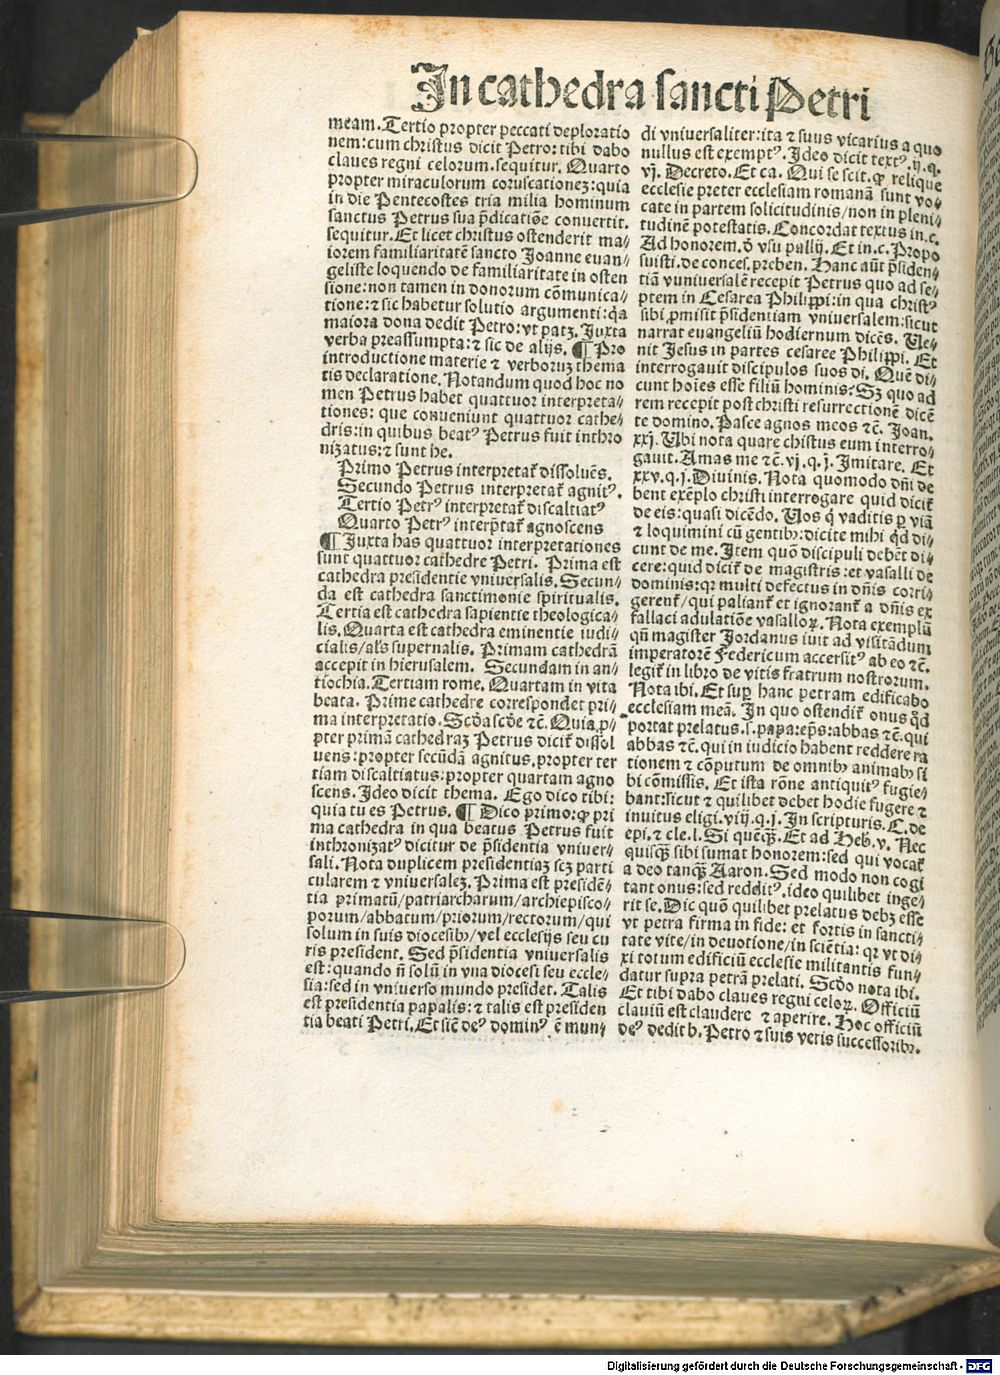 In cathedra sancti Petri
meam. Tertio propter peccati deploratio
nem: cum christus dicit Petro: tibi dabo
claues regni celorum. sequitur. Quarto
propter miraculorum coruscationeꝫ: quia
in die Pentecostes tria milia hominum
sanctus Petrus sua p̃dicatiõe conuertit.
sequitur. Et licet christus ostenderit ma⸗
iorem familiaritatẽ sancto Joanne euan⸗
geliste loquendo de familiaritate in osten
sione: non tamen in donorum cõmunica⸗
tione: ⁊ sic habetur solutio argumenti: q̃a
maiora dona dedit Petro: vt patꝫ. Juxta
verba preassumpta: ⁊ sic de alijs. ¶ Pro
introductione materie ⁊ verboruꝫ thema
tis declaratione. Notandum quod hoc no
men Petrus habet quattuor interpreta⸗
tiones: que conueniunt quattuor cathe⸗
dris: in quibus beatꝰ Petrus fuit inthro
nizatus: ⁊ sunt he.
Primo Petrus interpretat̃ dissoluẽs.
Secundo Petrus interpretat̃ agnitꝰ.
Tertio Petrꝰ interpretat̃ discaltiatꝰ
Quarto Petrꝰ interp̃tat̃ agnoscens
¶ Juxta has quattuor interpretationes
sunt quattuor cathedre Petri. Prima est
cathedra presidentie vniuersalis. Secun⸗
da est cathedra sanctimonie spiritualis.
Tertia est cathedra sapientie theologica⸗
lis. Quarta est cathedra eminentie iudi⸗
cialis/als̃ supernalis. Primam cathedrã
accepit in hierusalem. Secundam in an⸗
tiochia. Tertiam rome. Quartam in vita
beata. Prime cathedre correspondet pri⸗
ma interpretatio. Scđa scđe ⁊c̃. Quia ꝓ⸗
pter primã cathedraꝫ Petrus dicit̃ dissol
uens: propter secũdã agnitus. propter ter
tiam discaltiatus: propter quartam agno
scens. Ideo dicit thema. Ego dico tibi:
quia tu es Petrus. ¶ Dico primo: ꝙ pri
ma cathedra in qua beatus Petrus fuit
inthronizatꝰ dicitur de p̃sidentia vniuer⸗
sali. Nota duplicem presidentiaꝫ scꝫ parti
cularem ⁊ vniuersaleꝫ. Prima est presidẽ⸗
tia primatũ/patriarcharum/archiepisco⸗
porum/abbatum/priorum/rectorum/qui
solum in suis diocesibꝰ/vel ecclesijs seu cu
ris president. Sed p̃sidentia vniuersalis
est: quando ñ solũ in vna diocesi seu eccle⸗
sia: sed in vniuerso mundo presidet. Talis
est presidentia papalis: ⁊ talis est presiden
tia beati Petri. Et siẽ deꝰ dominꝰ ẽ mun⸗
di vniuersaliter: ita ⁊ suus vicarius a quo
nullus est exemptꝰ. Ideo dicit textꝰ. ij. q.
vj. Decreto. Et ca. Qui se scit. ꝙ relique
ecclesie preter ecclesiam romanã sunt vo⸗
cate in partem solicitudinis/non in pleni⸗
tudinẽ potestatis. Concordat textus in. c.
Ad honorem. ð vsu pallij. Et in. c. Propo
suisti. de conces. preben. Hanc aũt p̃siden⸗
tiã vuniuersalẽ recepit Petrus quo ad se⸗
ptem in Cesarea Philippi: in qua christꝰ
sibi ꝓmisit p̃sidentiam vniuersalem: sicut
narrat euangeliũ hodiernum dicẽs. Ve⸗
nit Jesus in partes cesaree Philippi. Et
interrogauit discipulos suos di. Quẽ di⸗
cunt hoĩes esse filiũ hominis: Sꝫ quo ad
rem recepit post christi resurrectionẽ dicẽ
te domino. Pasce agnos meos ⁊c̃. Joan.
xxj. Ubi nota quare chistus eum interro⸗
gauit. Amas me ⁊c̃. vj. q. j. Imitare. Et
xxv. q. j. Diuinis. Nota quomodo dñi de
bent exẽplo christi interrogare quid dicit̃
de eis: quasi dicẽdo. Uos q̃ vaditis ꝑ viã
⁊ loquimini cũ gentibꝰ: dicite mihi q̃d di⸗
cunt de me. Item quõ discipuli debẽt di⸗
cere: quid dicit̃ de magistris: et vasalli de
dominis: qꝛ multi defectus in dñis corri⸗
gerent̃/qui paliant̃ et ignorant̃ a dñis ex
fallaci adulatiõe vasalloꝝ. Nota exemplũ
qñ magister Jordanus iuit ad visitãdum
imperatorẽ Federicum accersitꝰ ab eo ⁊c̃.
legit̃ in libro de vitis fratrum nostrorum.
Nota ibi. Et suꝑ hanc petram edificabo
ecclesiam meã. In quo ostendit̃ onus q̃d
portat prelatus. s. papa: ep̃s: abbas ⁊c̃. qui
abbas ⁊c̃. qui in iudicio habent reddere ra
tionem ⁊ cõputum de omnibꝰ animabꝰ si
bi cõmissis. Et ista rõne antiquitꝰ fugie⸗
bant: sicut ⁊ quilibet debet hodie fugere ⁊
inuitus eligi. viij. q. j. In scripturis. C. de
epi. ⁊ cle. l. Si quẽqꝫ. Et ad Heb. v. Nec
quisqꝫ sibi sumat honorem: sed qui vocat̃
a deo tanqꝫ Aaron. Sed modo non cogi
tant onus: sed redditꝰ. ideo quilibet inge⸗
rit se. Dic quõ quilibet prelatus debꝫ esse
vt petra firma in fide: et fortis in sancti⸗
tate vite/in deuotione/in sciẽtia: qꝛ vt di⸗
xi totum edificiũ ecclesie militantis fun⸗
datur supra petrã prelati. Scđo nota ibi.
Et tibi dabo claues regni celoꝝ. Officiũ
clauiũ est claudere ⁊ aperire. Hoc officiũ
deꝰ dedit b. Petro ⁊ suis veris successoribꝰ.
Digitalisierung gefördert durch die Deutsche Forschungsgemeinschaft - DFG